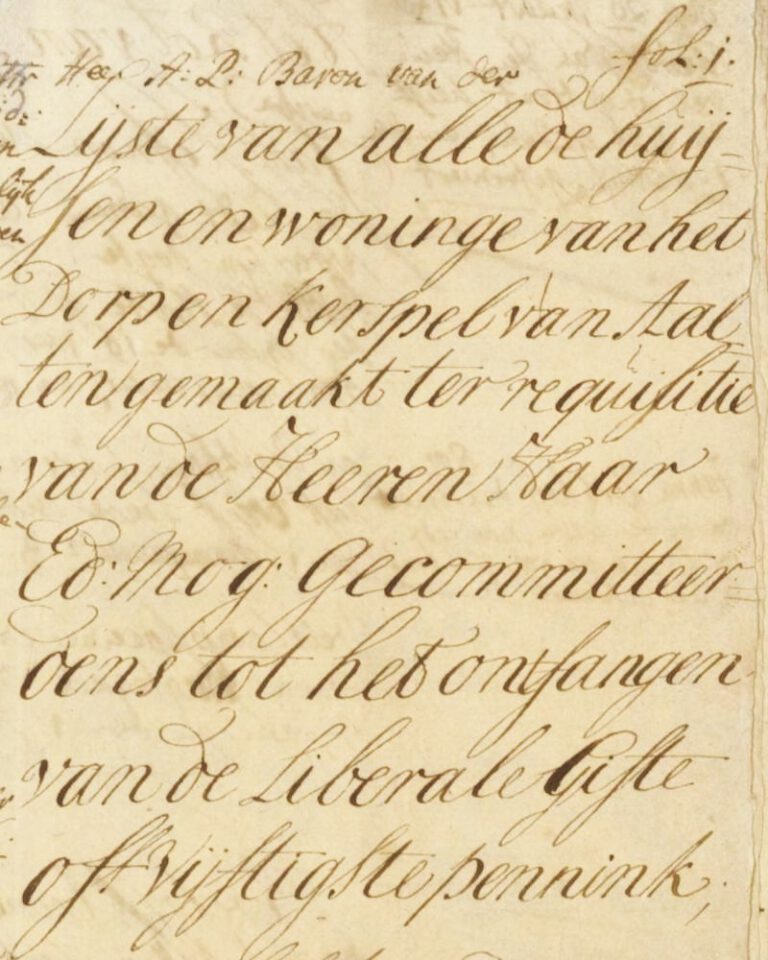 Heer A: P: Baron van der fol: 1.
Lijste van alle de huij=
sen en woninge van het
Dorp en Kerspel van Aal
ten gemaakt ter requisitie
van de Heeren Haar
Ed: Mog: Gecommitteer=
dens tot het ontfangen
van de Liberale Gifte
off Vijftigste pennink,